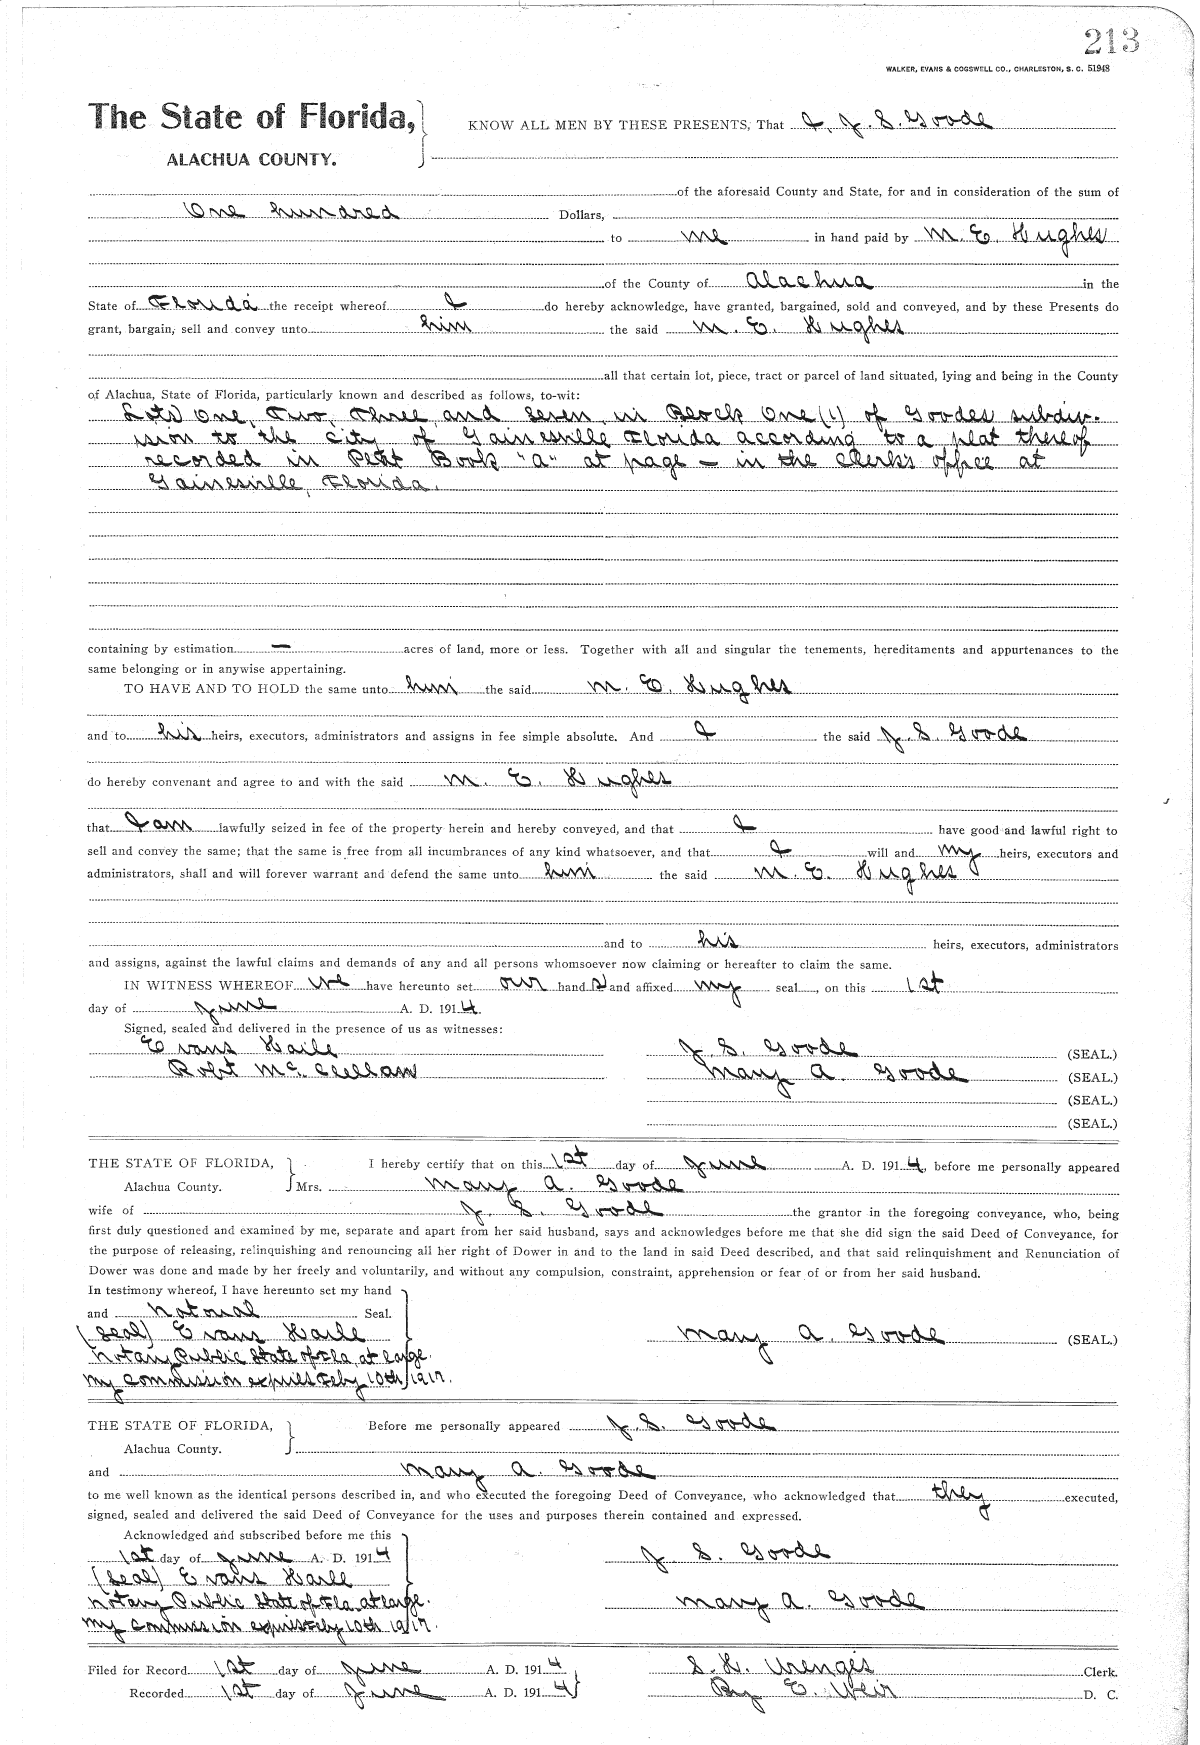 213
WALKER, EVANS & COGSWELL CO., CHARLESTON, S. C. 51948
The State of Florida, KNOW ALL MEN BY THESE PRESENTS, That I, J. S. Goode
ALACHUA COUNTY.
of the aforesaid County and State, for and in consideration of the sum of
One hundred Dollars,
to me in hand paid by M. E. Hughes
of the County of Alachua in the
State of Florida the receipt whereof I do hereby acknowledge, have granted, bargained, sold and conveyed, and by these Presents do
grant, bargain, sell and convey unto him the said M. E. Hughes
all that certain lot, piece, tract or parcel of land situated, lying and being in the County
of Alachua, State of Florida, particularly known and described as follows, to-wit:
Lots One, Two, Three, and Seven, in Block One (1) of Goodes subdiv-
ision to the City of Gainesville Florida according to a plat thereof
recorded in Plat Book "A" at page — in the Clerk's office at
Gainesville, Florida.
containing by estimation — acres of land, more or less. Together with all and singular the tenements, hereditaments and appurtenances to the
same belonging or in anywise appertaining.
TO HAVE AND TO HOLD the same unto him the said M. E. Hughes
and to his heirs, executors, administrators and assigns in fee simple absolute. And I the said J. S. Goode
do hereby convenant and agree to and with the said M. E. Hughes
that I am lawfully seized in fee of the property herein and hereby conveyed, and that I have good and lawful right to
sell and convey the same; that the same is free from all incumbrances of any kind whatsoever, and that I will and my heirs, executors and
administrators, shall and will forever warrant and defend the same unto him the said M. E. Hughes
and to his heirs, executors, administrators
and assigns, against the lawful claims and demands of any and all persons whomsoever now claiming or hereafter to claim the same.
IN WITNESS WHEREOF we have hereunto set our hand s and affixed my seal, on this 1st
day of June A. D. 1914.
Signed, sealed and delivered in the presence of us as witnesses:
Evans Haile J. S. Goode (SEAL.)
Robt McClellan Mary A. Goode (SEAL.)
(SEAL.)
(SEAL.)
THE STATE OF FLORIDA, I hereby certify that on this 1st day of June A. D. 1914, before me personally appeared
Alachua County. Mrs. Mary A. Goode
wife of J. S. Goode the grantor in the foregoing conveyance, who, being
first duly questioned and examined by me, separate and apart from her said husband, says and acknowledges before me that she did sign the said Deed of Conveyance, for
the purpose of releasing, relinquishing and renouncing all her right of Dower in and to the land in said Deed described, and that said relinquishment and Renunciation of
Dower was done and made by her freely and voluntarily, and without any compulsion, constraint, apprehension or fear of or from her said husband.
In testimony whereof, I have hereunto set my hand
and Notarial Seal.
(Seal) Evans Haile Mary A. Goode (SEAL.)
Notary Public State of Fla. at large.
My commission expires Feby 10th 1917.
THE STATE OF FLORIDA, Before me personally appeared J. S. Goode
Alachua County.
and Mary A. Goode
to me well known as the identical persons described in, and who executed the foregoing Deed of Conveyance, who acknowledged that they executed,
signed, sealed and delivered the said Deed of Conveyance for the uses and purposes therein contained and expressed.
Acknowledged and subscribed before me this
1st day of June A. D. 1914 J. S. Goode
(Seal) Evans Haile
Notary Public State of Fla. at large. Mary A. Goode
My commission expires Feby 10th 1917.
Filed for Record 1st day of June A. D. 1914 S. H. Wienges Clerk.
Recorded 1st day of June A. D. 1914 By E. Weir D. C.